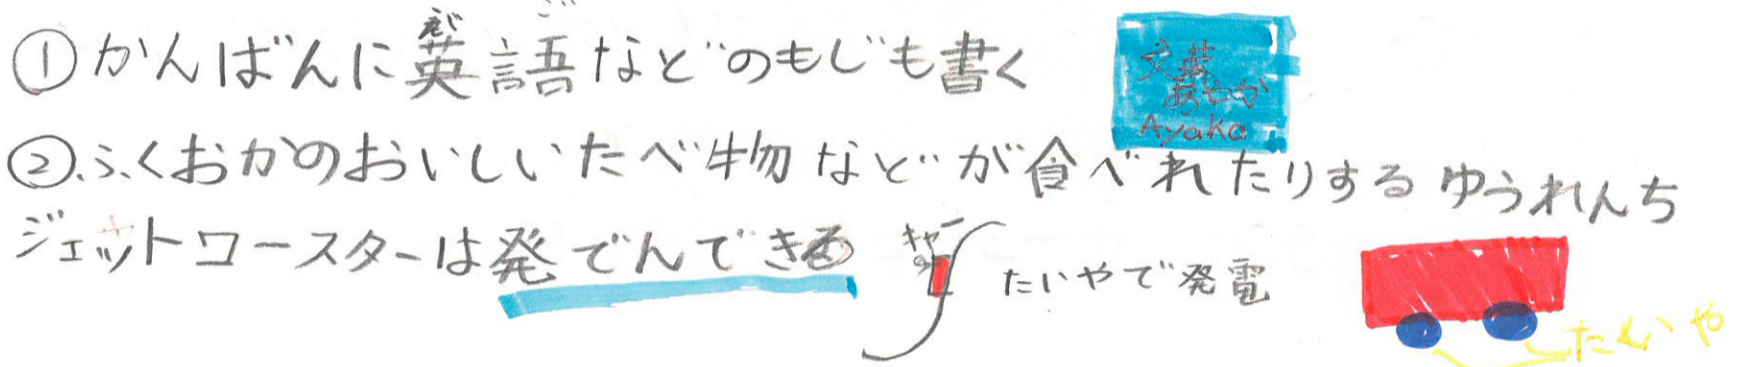 ①かんばんに英語などのもじも書く
えい ご
文華
あやか
Ayaka
②ふくおかのおいしいたべ物などが食べれたりするゆうれんち
ジェットコースターは発でんできる
キャー
たいやで発電
たいや